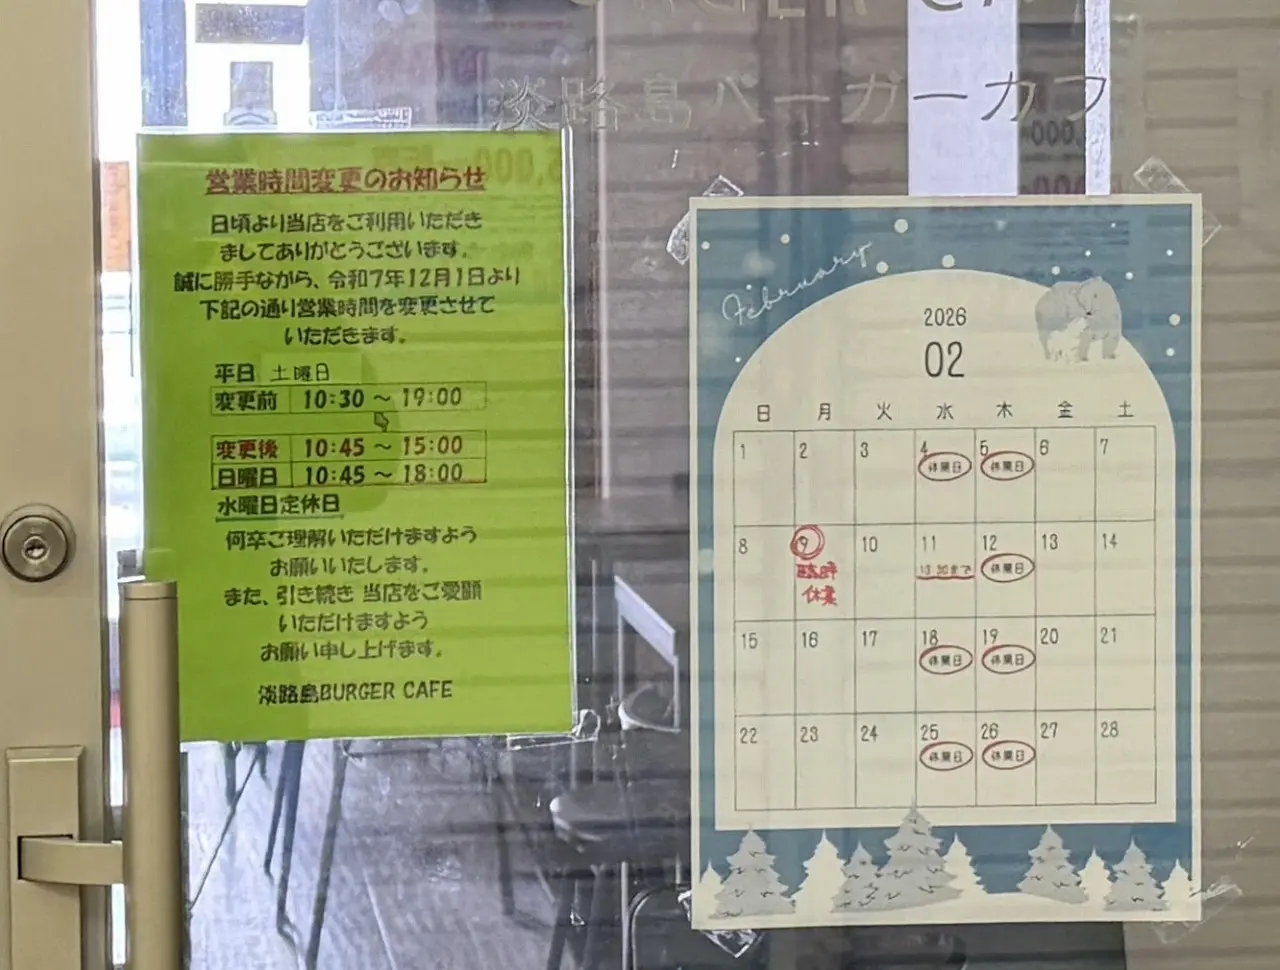 淡路島バーガーカフ
営業時間変更のお知らせ
日頃より当店をご利用いただき
ましてありがとうございます。
誠に勝手ながら、令和7年12月1日より
下記の通り営業時間を変更させて
いただきます。
平日 土曜日
変更前 10:30 ～ 19:00
変更後 10:45 ～ 15:00
日曜日 10:45 ～ 18:00
水曜日定休日
何卒ご理解いただけますよう
お願いいたします。
また、引き続き 当店をご愛顧
いただけますよう
お願い申し上げます。
淡路島BURGER CAFE
February
2026
02
日 月 火 水 木 金 土
1 2 3 4 5 6 7
休業日 休業日
8 9 10 11 12 13 14
臨時 休業日
休業
15 16 17 18 19 20 21
休業日 休業日
22 23 24 25 26 27 28
休業日 休業日